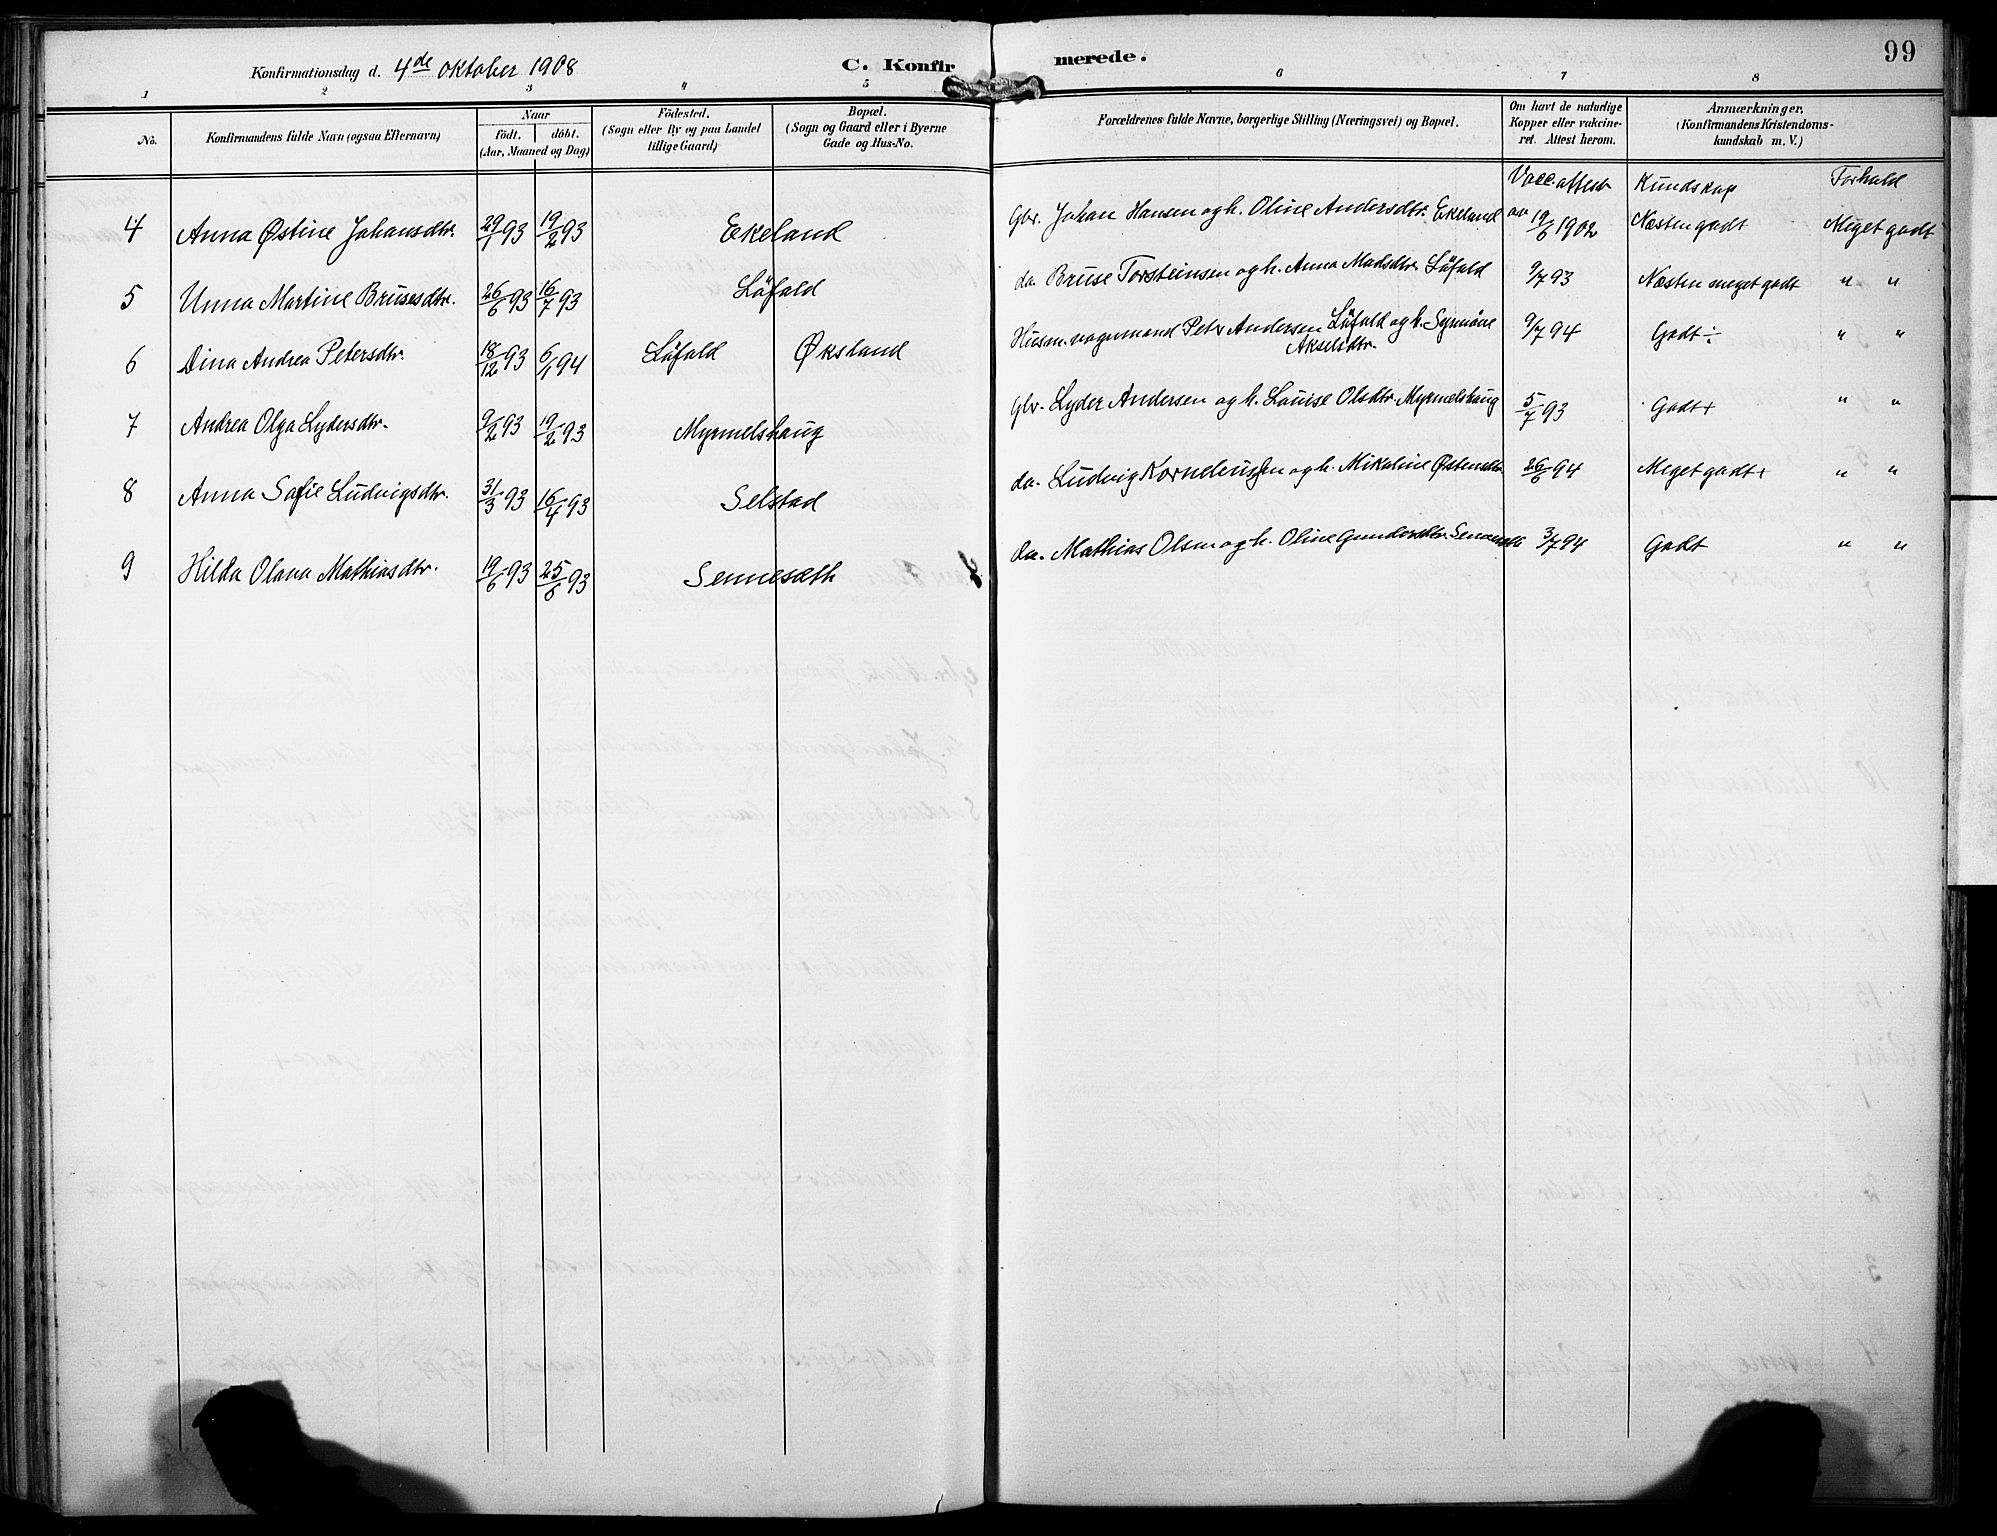 99
Konfirmationsdag d. 4de oktober 1908 C. Konfirmerede.
1 2 3 4 5 6 7 8
No. Konfirmandens fulde Navn (ogsaa Efternavn) Naar födt. döbt. (Aar, Maaned og Dag) Födested. (Sogn eller By og paa Landet tillige Gaard) Bopæl. (Sogn og Gaard eller i Byerne Gade og Hus-No. Forældrenes fulde Navne, borgerlige Stilling (Næringsvei) og Bopæl. Om havt de naturlige Kopper eller vakcineret. Attest herom. Anmærkninger, (Konfirmandens Kristendomskundskab m. V.)
Vacc. attest Kundskap Forhold
4 Anna Østine Johansdtr. 29/1 93 19/2 93 Ekeland Gbr. Johan Hansen og h. Oline Andersdtr. Ekeland av 19/6 1902 Næsten godt Meget godt
5 Anna Martine Brusesdtr. 26/6 93 16/7 93 Löfald do. Bruse Torsteinsen og h. Anna Madsdtr. Löfald 9/7 93 Næsten meget godt " "
6 Dina Andrea Petersdtr. 18/12 93 6/1 94 Löfald Øksland Husm. vognmand Petr Andersen Löfald og h. Synnöve Akselsdtr. 9/7 94 Godt ÷ " "
7 Andrea Olga Lydersdtr. 9/2 93 19/2 93 Myrmelshaug Gbr. Lyder Andersen og h. Louise Olsdtr. Myrmelshaug 5/7 93 Godt + " "
8 Anna Sofie Ludvigsdtr. 31/3 93 16/4 93 Selstad do. Ludvig Korneliussen og h. Mikaline Østensdtr 26/6 94 Meget godt + " "
9 Hilda Olava Mathiasdtr. 19/6 93 25/6 93 Sennesæth do. Mathias Olsen og h. Oline Gundersdtr. 3/7 94 Godt " "